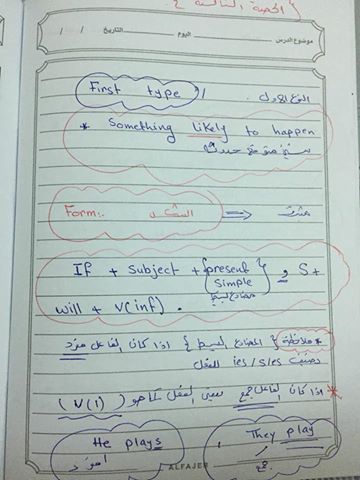 الحصة الثانية
موضوع الدرس اليوم التاريخ / /
First type // النوع الأول
* Something likely to happen
شيء متوقع حدوثه
Form:- الشكل ⇒
If + Subject + {present simple} و S +
مضارع بسيط
will + V(inf) .
* ملاحظة { المضارع البسيط } اذا كان الفاعل مفرد
نضيف s/es/ies للفعل
* اذا كان الفاعل جمع يبقى الفعل كما هو (V(1))
He plays They play
مفرد جمع
ALFAJER